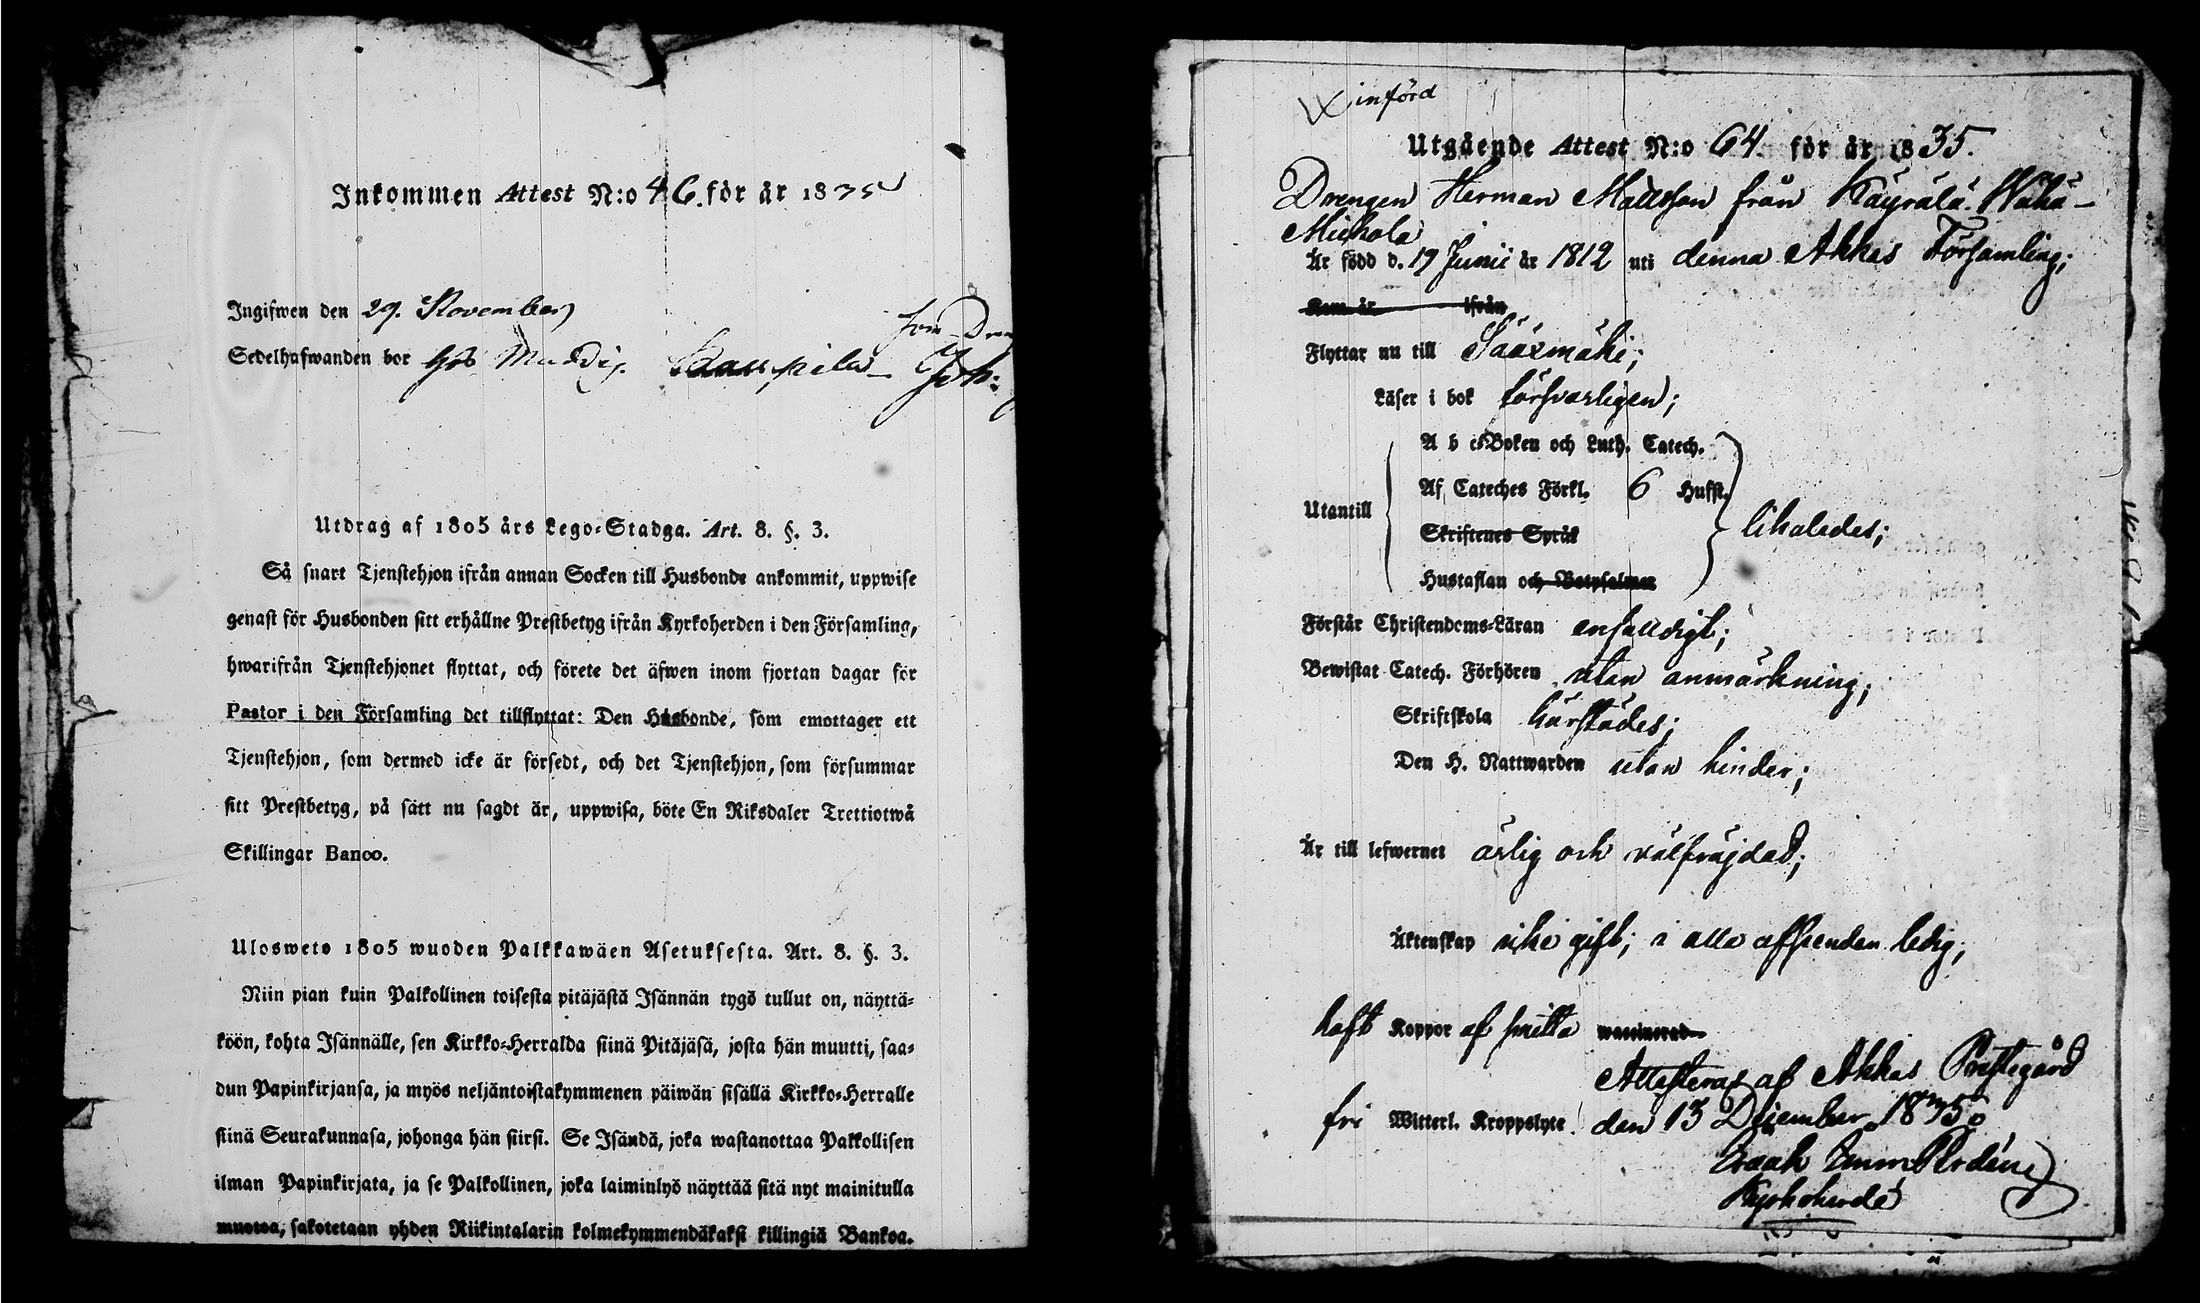 Inkommen Attest N:o 46. för år 1835
Ingifwen den 29. November
Sedelhafwanden bor hos
Utdrag af 1805 års Lego-Stadga. Art. 8. §. 3.
Så snart Tjenstehjon ifrån annan Socken till Husbonde ankommit, uppwise
genast för Husbonden sitt erhållne Prestbetyg ifrån Kyrkoherden i den Församling,
hwarifrån Tjenstehjonet flyttat, och förete det äfwen inom fjortan dagar för
Pastor i den Församling det tillflyttat: Den Husbonde, som emottager ett
Tjenstehjon, som dermed icke är försedt, och det Tjenstehjon, som försummar
sitt Prestbetyg, på sätt nu sagdt är, uppwisa, böte En Riksdaler Trettiotwå
Skillingar Banco.
Ulosweto 1805 wuoden Palkkawäen Asetuksesta. Art. 8. §. 3.
Niin pian kuin Palkollinen toisesta pitäjästä Isännän tygö tullut on, näyttä-
köön, kohta Isännälle, sen Kirkko-Herralda siinä Pitäjäsä, josta hän muutti, saa-
dun Papinkirjansa, ja myös neljäntoistakymmenen päiwän sisällä Kirkko-Herralle
siinä Seurakunnasa, johonga hän siirsi. Se Isändä, joka wastanottaa Palkollisen
ilman Papinkirjata, ja se Palkollinen, joka laiminlyö näyttää sitä nyt mainitulla
muotoa, sakotetaan yhden Riikintalarin kolmekymmendäkaksi killingiä Bankoa.
införd
Utgående Attest N:o 64 för år 1835.
Drengen Herman Mattsson från Käyrälä Wähä-
Mickola
Är född d. 19 Junii år 1812 uti denna Akkas Församling;
Kom år ifrån
Flyttar nu till Sääxmäki;
Läser i bok försvarligen;
A b c-Boken och Luth. Catech.
Af Cateches Förkl. 6 Hufst.
Utantill
likaledes;
Skriftenes Språk
Hustaflan och Botpsalmer
Förstår Christendoms-Läran enfalldigt;
Bewistat Catech. Förhören utan anmärkning;
Skriftskola härstädes;
Den H. Nattwarden utan hinder;
Är till lefwernet ärlig och välfräjdad;
Äktenskap icke gift; i alla afseenden ledig;
haft Koppor af smitta waccinerad
Attesteras af Akkas Prestegård
fri Witterl. Kroppslyte. den 13 December 1835.
Kyrkoherde